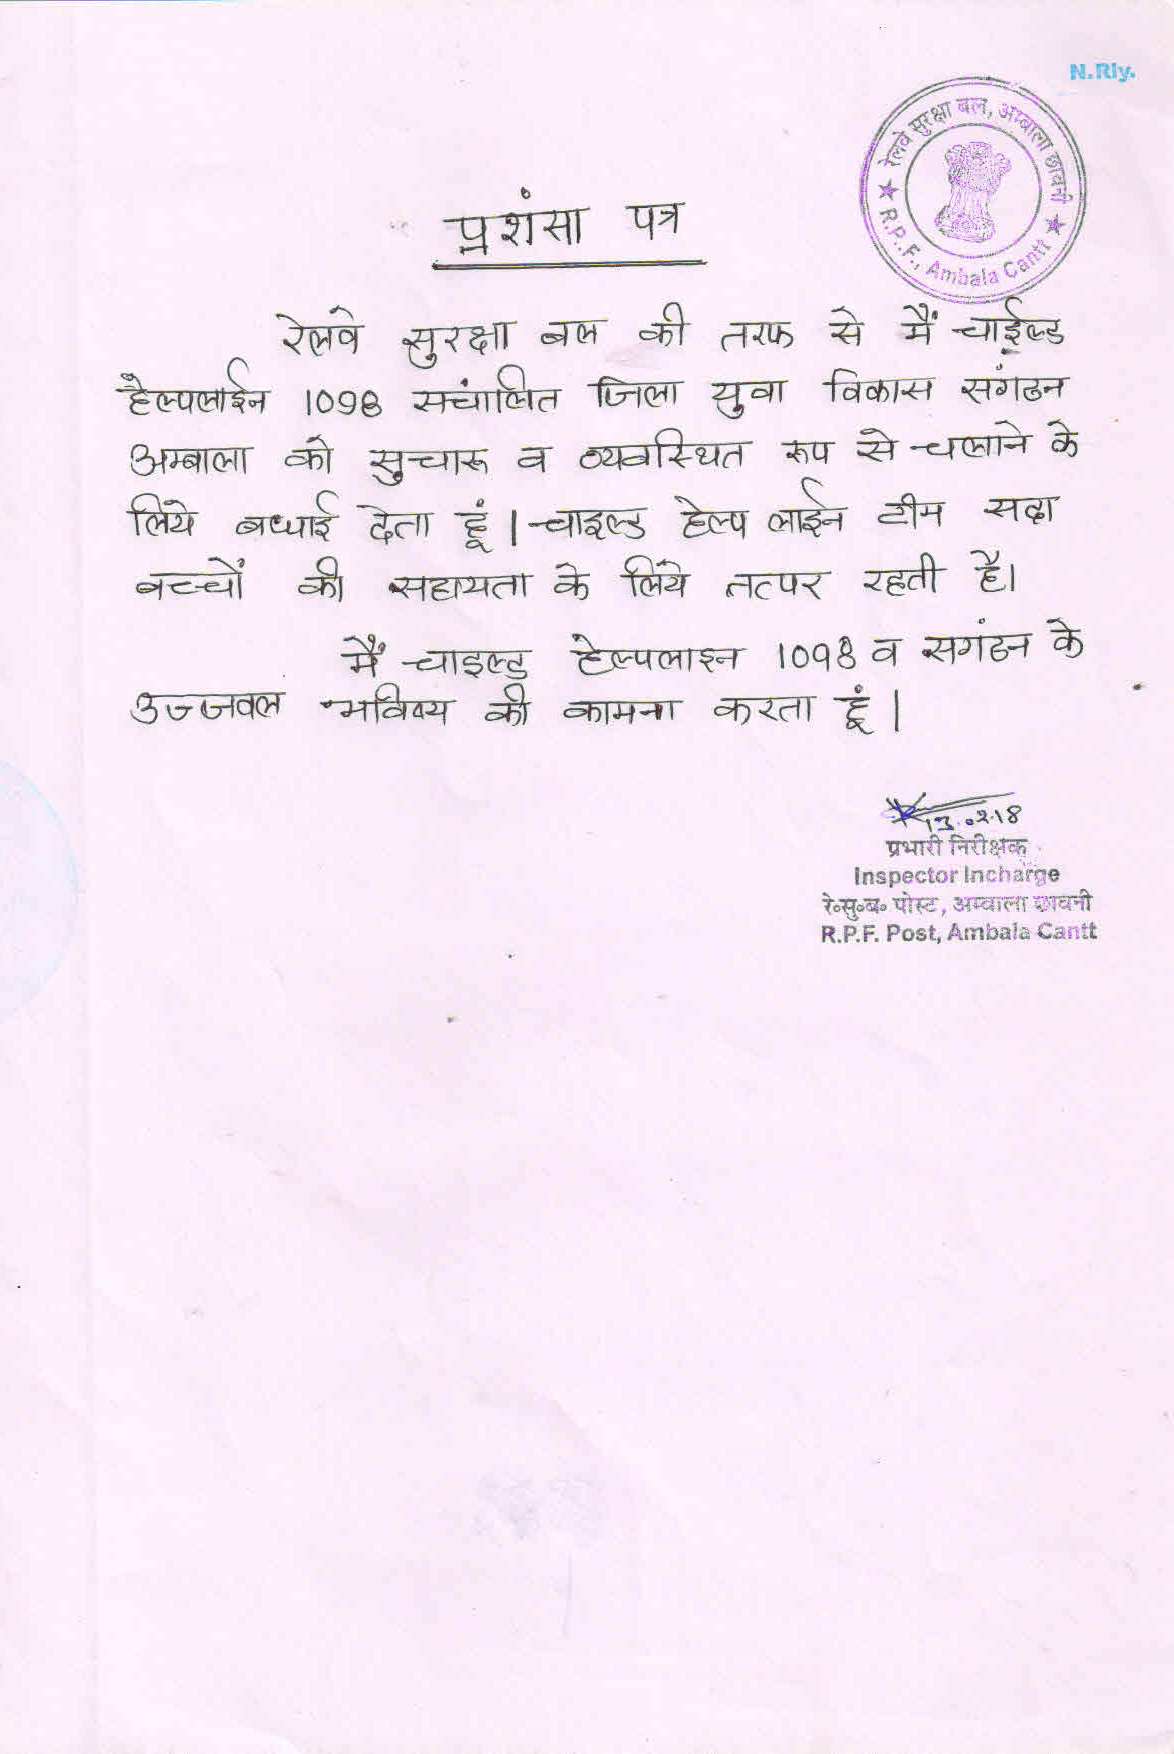 N.Rly.
रेलवे सुरक्षा बल, अम्बाला छावनी
R.P.F., Ambala Cantt
प्रशंसा पत्र
रेलवे सुरक्षा बल की तरफ से मैं चाईल्ड
हैल्पलाईन 1098 सचांलित जिला युवा विकास सगंठन
अम्बाला को सुचारू व व्यवस्थित रूप से चलाने के
लिये बधाई देता हूं। चाइल्ड हेल्प लाईन टीम सदा
बच्चों की सहायता के लिये तत्पर रहती है।
मैं चाइल्ड हेल्पलाइन 1098 व सगंठन के
उज्जवल भविष्य की कामना करता हूं।
13.02.18
प्रभारी निरीक्षक
Inspector Incharge
रे॰सु॰ब॰ पोस्ट, अम्बाला छावनी
R.P.F. Post, Ambala Cantt